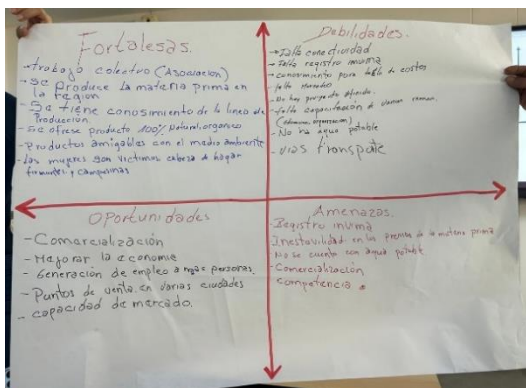 Fortalesas.
-trabajo colectivo (Asociacion)
-Se produce la materia prima en
la region
-Se tiene conosimiento de la linea de
Produccion
-Se ofrese producto 100% Natural, organico
-Productos amigables con el medio ambiente
-las mujeres son victimas cabeza de hogar
y campesinas
Debilidades.
-falta conectividad
-falta registro invima
-conocimientos para tabla de costos
-falta Mercadeo
-No hay
-falta capacitación de varios temas.
-No ha agua potable
-vias transpote
Oportunidades
-Comercialización
-Mejorar la economia
-Generación de empleo a mas personas.
-Puntos de venta en varias ciudades
-capacidad de mercado.
Amenazas.
-Registro invima
-Inestavilidad en los de la materia prima
-No se cuenta con agua potable
-Comercialización
-competencia.